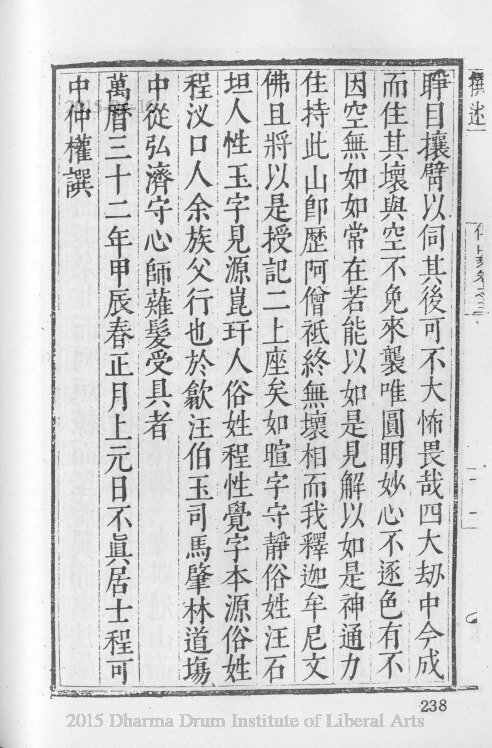 撰述
睜目攘臂以伺其後可不大怖畏哉四大劫中今成
而住其壞與空不免來襲唯圓明妙心不逐色有不
因空無如如常在若能以如是見解以如是神通力
住持此山卽歷阿僧祇終無壞相而我釋迦牟尼文
佛且將以是授記二上座矣如暄字守靜俗姓汪石
坦人性玉字見源崑玕人俗姓程性覺字本源俗姓
程汊口人余族父行也於歙汪伯玉司馬肇林道場
中從弘濟守心師薙髮受具者
萬曆三十二年甲辰春正月上元日不眞居士程可
中仲權譔
238
2015 Dharma Drum Institute of Liberal Arts